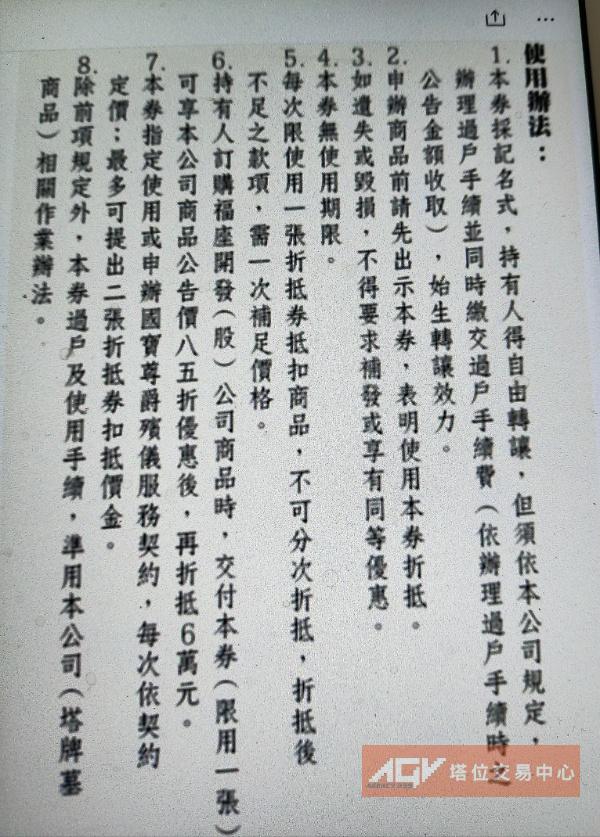 使用辦法：
1.本券採記名式，持有人得自由轉讓，但須依本公司規定，
辦理過戶手續並同時繳交過戶手續費（依辦理過戶手續時之
公告金額收取），始生轉讓效力。
2.申辦商品前請先出示本券，表明使用本券折抵。
3.如遺失或毀損，不得要求補發或享有同等優惠。
4.本券無使用期限。
5.每次限使用一張折抵券抵扣商品，不可分次折抵，折抵後
不足之款項，需一次補足價格。
6.持有人訂購福座開發（股）公司商品時，交付本券（限用一張）
可享本公司商品公告價八五折優惠後，再折抵6萬元。
7.本券指定使用或申辦國寶尊爵殯儀服務契約，每次依契約
定價：最多可提出二張折抵券扣抵價金。
8.除前項規定外，本券過戶及使用手續，準用本公司（塔牌墓
商品）相關作業辦法。
AGV 塔位交易中心